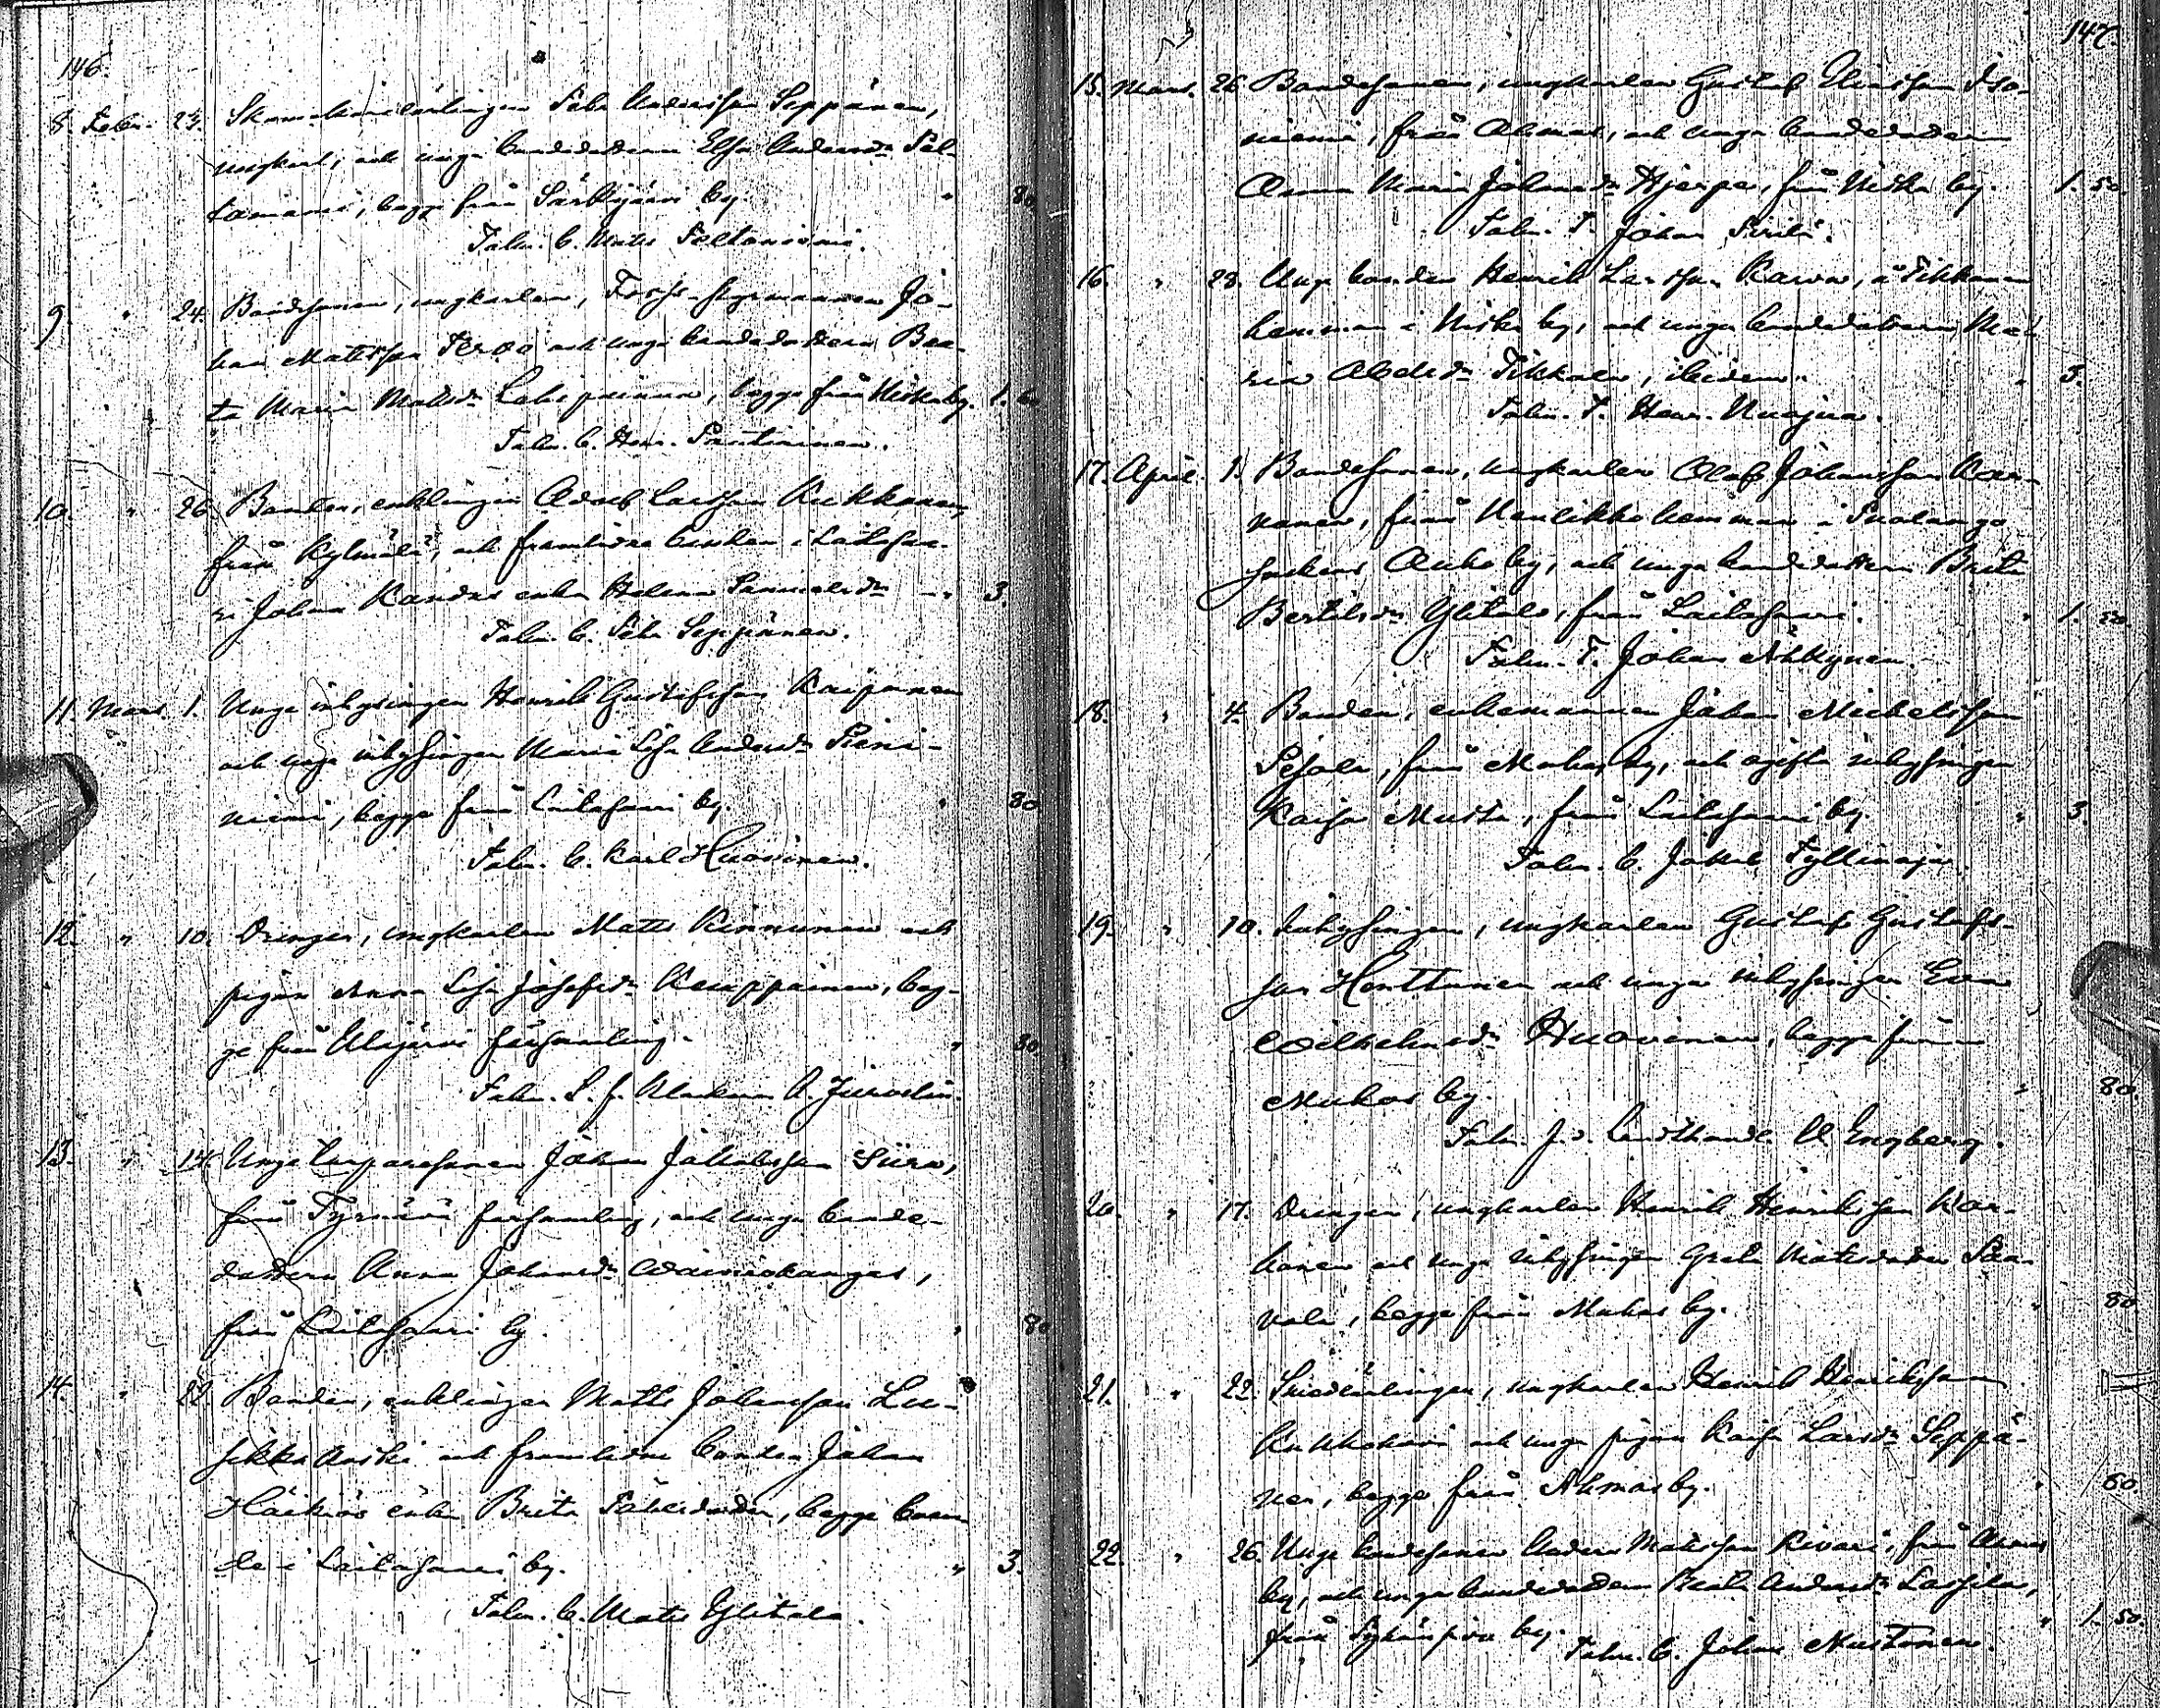 146.
8. Febr. 23. Skomakarelärlingen Pehr Andersson Seppänen,
ungkarl, och unga bondedottern Elsa Andersdr Pel-
taniemi, begge från Särkijärvi by. " 80
Talm. b. Matts Peltoniemi.
9. " 24. Bondesonen, ungkarlen, Forss-styrmannen Jo-
han Matsson Tervo och unga bondedottern Bea-
ta Maria Matsdr Lahipuinna, begge från Niska by. 1. 60
Talm. b. Henr. Pontininen.
10. " 26. Bonden, enklingen Adolf Larsson Kukkonen,
från Kylmälä, och framlidne bonden i Laitasaa-
ri Johan Kandas enka Helena Samuelsdr " 3.
Talm. b. Pehr Seppänen.
11. Mars. 1. Unge inhysingen Henrik Gustafsson Kaipanen
och unga inhysingen Maria Lisa Andersdr Pieni-
niemi, begge från Laitasaari by. " 80
Talm. b. Karl Huovinen.
12. " 10. Drengen, ungkarlen Matts Kinnunen och
pigan Anna Lisa Josefsdr Kemppainen, beg-
ge från Utajärvi församling. " 80.
Talm. S. f. Klockaren A. Juvelin.
13. " 14. Unge torparesonen Johan Jakobsson Siira,
från Tyrnävä församling, och unga bonde-
dottern Anna Johansdr Wainiokangas,
från Laitasaari by. " 80
14. " 22. Bonden, enklingen Matts Johansson Lu-
sikka och framlidne bonden Johan
Häikiös enka Brita Pährsdotter, begge boen-
de i Laitasaari by. " 3.
Talm. b. Matts Ylitalo.
147.
15. Mars. 26. Bondesonen, ungkarlen Gustaf Eliasson Iso-
niemi, från Ahmas, och unga bondedottern
Anna Maria Johansdr Hjerpe, från Niska by. 1. 50
Talm. T. Johan Pirilä.
16. " 28. Unge bonden Henrik Larsson Karvo, å Tikkanen
hemman i Niska by, och unga bondedottern Ma-
ria Abelsdr Tikkanen, ibidem. " 3.
Talm. T. Henr. Nuojua.
17. April. 1. Bondesonen, ungkarlen Olof Johansson Kar-
nanen, från hemman i Paldamo
sockens Auho by, och unga bondedottern Brita
Bertilsdr Ylitalo, från Laitasaari. " 1. 50
Talm. T. Johan Kykynen.
18. " 4. Bonden, enkemannen Johan Michelsson
Pesola, från Muhos by, och ogifta inhysingen
Kaisa Musta, från Laitasaari by. " 3.
Talm. b. Jakob Tyllinoja.
19. " 10. Inhysingen, ungkarlen Gustaf Gustafs-
son Henttunen och unga inhysingen Eva
Wilhelmsdr Huovinen, begge från
Muhos by. " 80.
Talm. f. d. Landthandl. A. Engberg.
20. " 17. Drengen, ungkarlen Henrik Henriksson Kor-
honen och unga inhysingen Greta Matsdotter Paa-
vola, begge från Muhos by. " 80
21. " 22. Smedlärlingen, ungkarlen Henrik Henriksson
och unga pigan Kaisa Larsdr Seppä-
nen, begge från Ahmas by. " 80
22. " 26. Unge bondesonen Anders Matsson Kivari, från Ahmas
by, och unga bondedottern Beata Andersdr Lassila,
från Pyhänsivu by. " 1. 50.
Talm. b. Johan Mustonen.